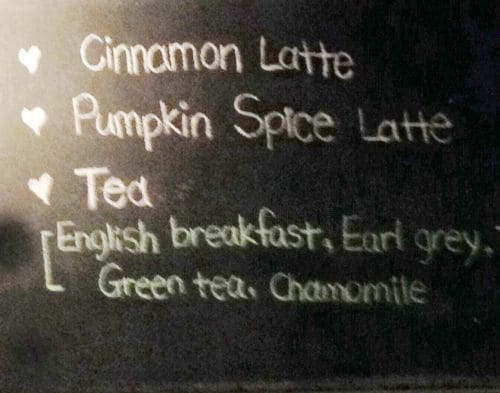 Cinnamon Latte
Pumpkin Spice Latte
Tea
English breakfast, Earl grey,
Green tea, Chamomile